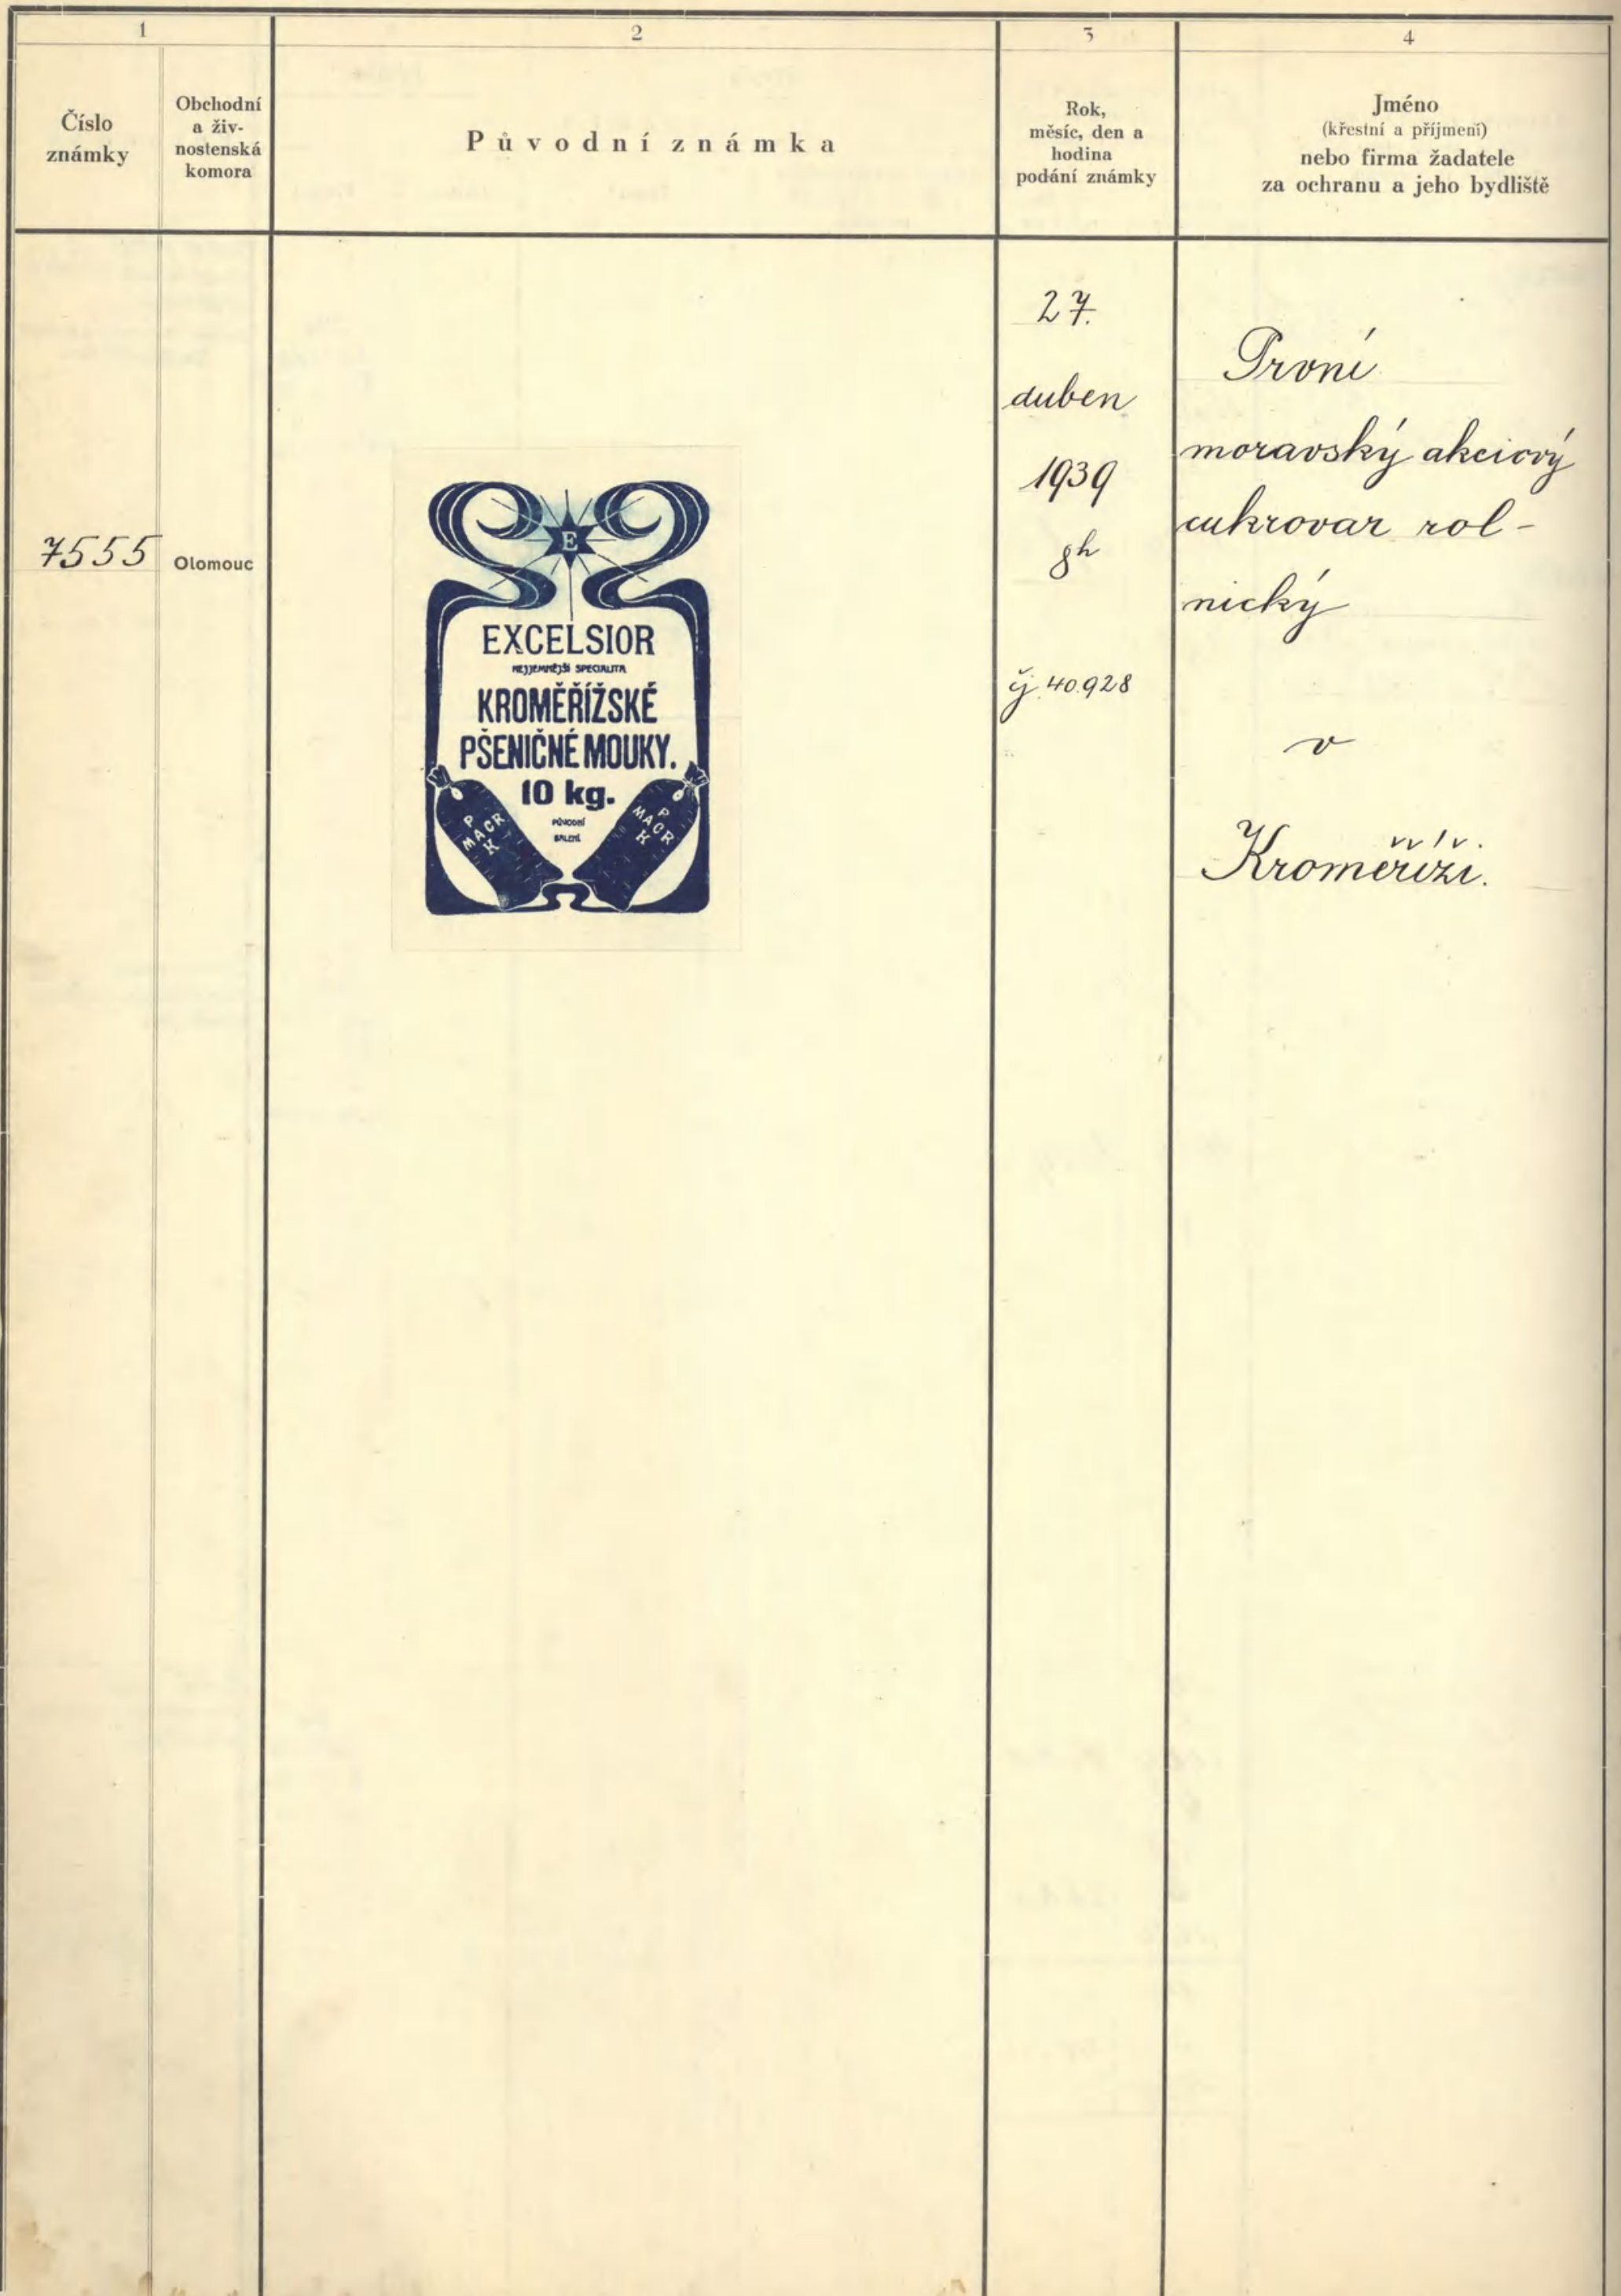 1
2
3
4
Číslo
známky
Obchodní
a živ-
nostenská
komora
Původní známka
Rok,
měsíc, den a
hodina
podání známky
Jméno
(křestní a příjmení)
nebo firma žadatele
za ochranu a jeho bydliště
7555
Olomouc
E
EXCELSIOR
NEJJEMNĚJŠÍ SPECIALITA
KROMĚŘÍŽSKÉ
PŠENIČNÉ MOUKY.
10 kg.
PŮVODNÍ
BALENÍ
P
MACR
K
P
MACR
K
27.
duben
1939
8h
čj 40.928
První
moravský akciový
cukrovar rol-
nický
v
Kroměříži.